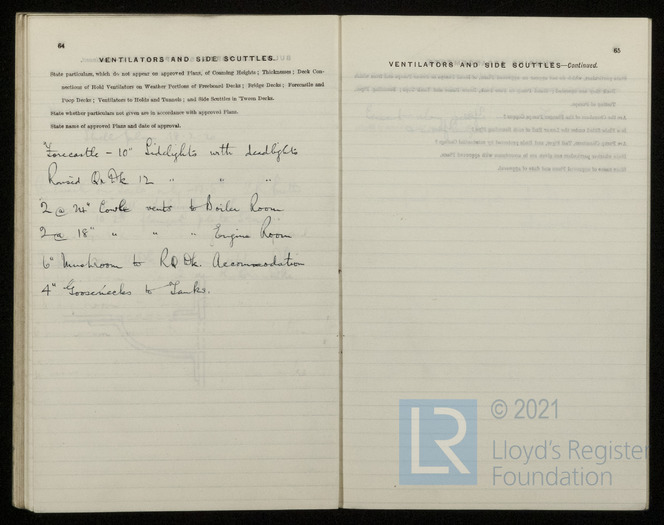 64
VENTILATORS AND SIDE SCUTTLES.
State particulars, which do not appear on approved Plans, of Coaming Heights; Thicknesses; Deck Con-
nections of Hold Ventilators on Weather Portions of Freeboard Decks; Bridge Decks; Forecastle and
Poop Decks; Ventilators to Holds and Tunnels; and Side Scuttles in 'Tween Decks.
State whether particulars not given are in accordance with approved Plans.
State name of approved Plans and date of approval.
Forecastle - 10" Sidelights with deadlights
Raised Qr Dk 12 " " "
2 @ 24" Cowls vents to Boiler Room
2 @ 18" " " " Engine Room
6" Mushroom to RQ Dk. Accommodation
4" Goosenecks to Tanks.
65
VENTILATORS AND SIDE SCUTTLES—Continued.
LR
© 2021
Lloyd's Register
Foundation